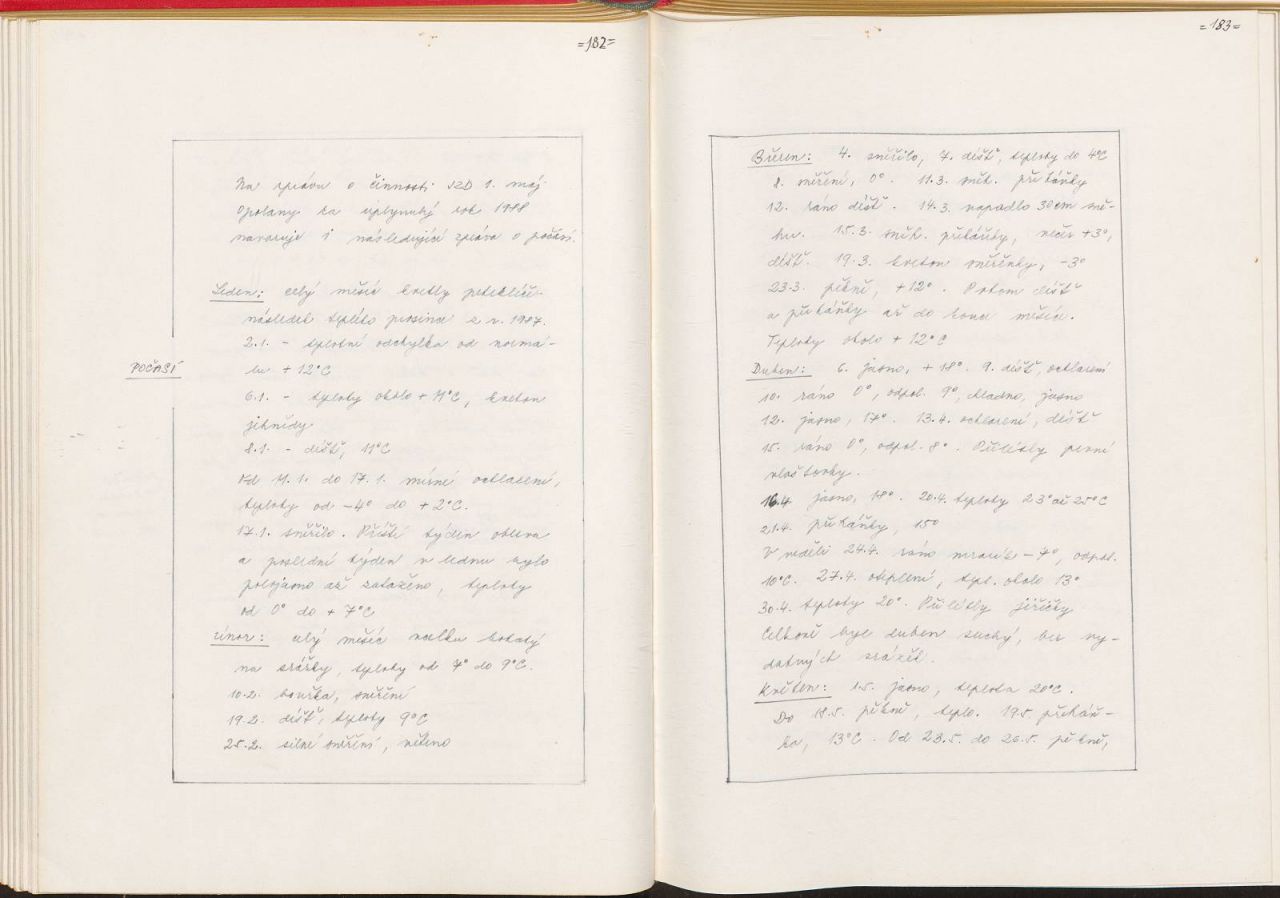 =182=
Na zprávu o činnosti JZD 1. máj
Opolany za uplynulý rok 1988
navazuje i následující zpráva o počasí.
Leden: celý měsíc kvetly petrklíče-
následek teplého prosince z r. 1987.
2.1. - teplotní odchylka od normá-
lu + 12°C
POČASÍ
6.1. - teploty okolo + 11°C, kvetou
jehnědy
8.1. - déšť, 11°C
Od 11.1. do 17.1. mírné ochlazení,
teploty od -4° do + 2°C.
17.1. sněžilo. Příští týden obleva
a poslední týden v lednu bylo
polojasno až zataženo, teploty
od 0° do + 7°C
Únor: celý měsíc velku bohatý
na srážky, teploty od 7° do 9°C.
10.2. bouřka, sněžení
19.2. déšť, teploty 9°C
25.2. silné sněžení, větrno
=183=
Březen: 4. sněžilo, 7. déšť, teploty do 4°C
8. sněžení, 0°. 11.3. sněh. přeháňky
12. ráno déšť. 14.3. napadlo 30cm sně-
hu. 15.3. sněh. přeháňky, večer +3°,
déšť. 19.3. kvetou sněženky, -3°
23.3. pěkně, +12°. Potom déšť
a přeháňky až do konce měsíce.
Teploty okolo + 12°C
Duben: 6. jasno, + 18°. 9. déšť, ochlazení
10. ráno 0°, odpol. 9°, chladno, jasno
12. jasno, 17°. 13.4. ochlazení, déšť
15. ráno 0°, odpol. 8°. Přilétly první
vlaštovky.
16.4. jasno, 18°. 20.4. teploty 23° až 25°C
21.4. přeháňky, 15°
V neděli 24.4. ráno mrazík -7°, odpol.
10°C. 27.4. oteplení, tepl. okolo 13°
30.4. teploty 20°. Přilétly jiřičky
Celkově byl duben suchý, bez vy-
datných srážek.
Květen: 1.5. jasno, teplota 20°C.
Do 18.5. pěkně, teplo. 19.5. přeháň-
ka, 13°C. Od 23.5. do 26.5. pěkně,